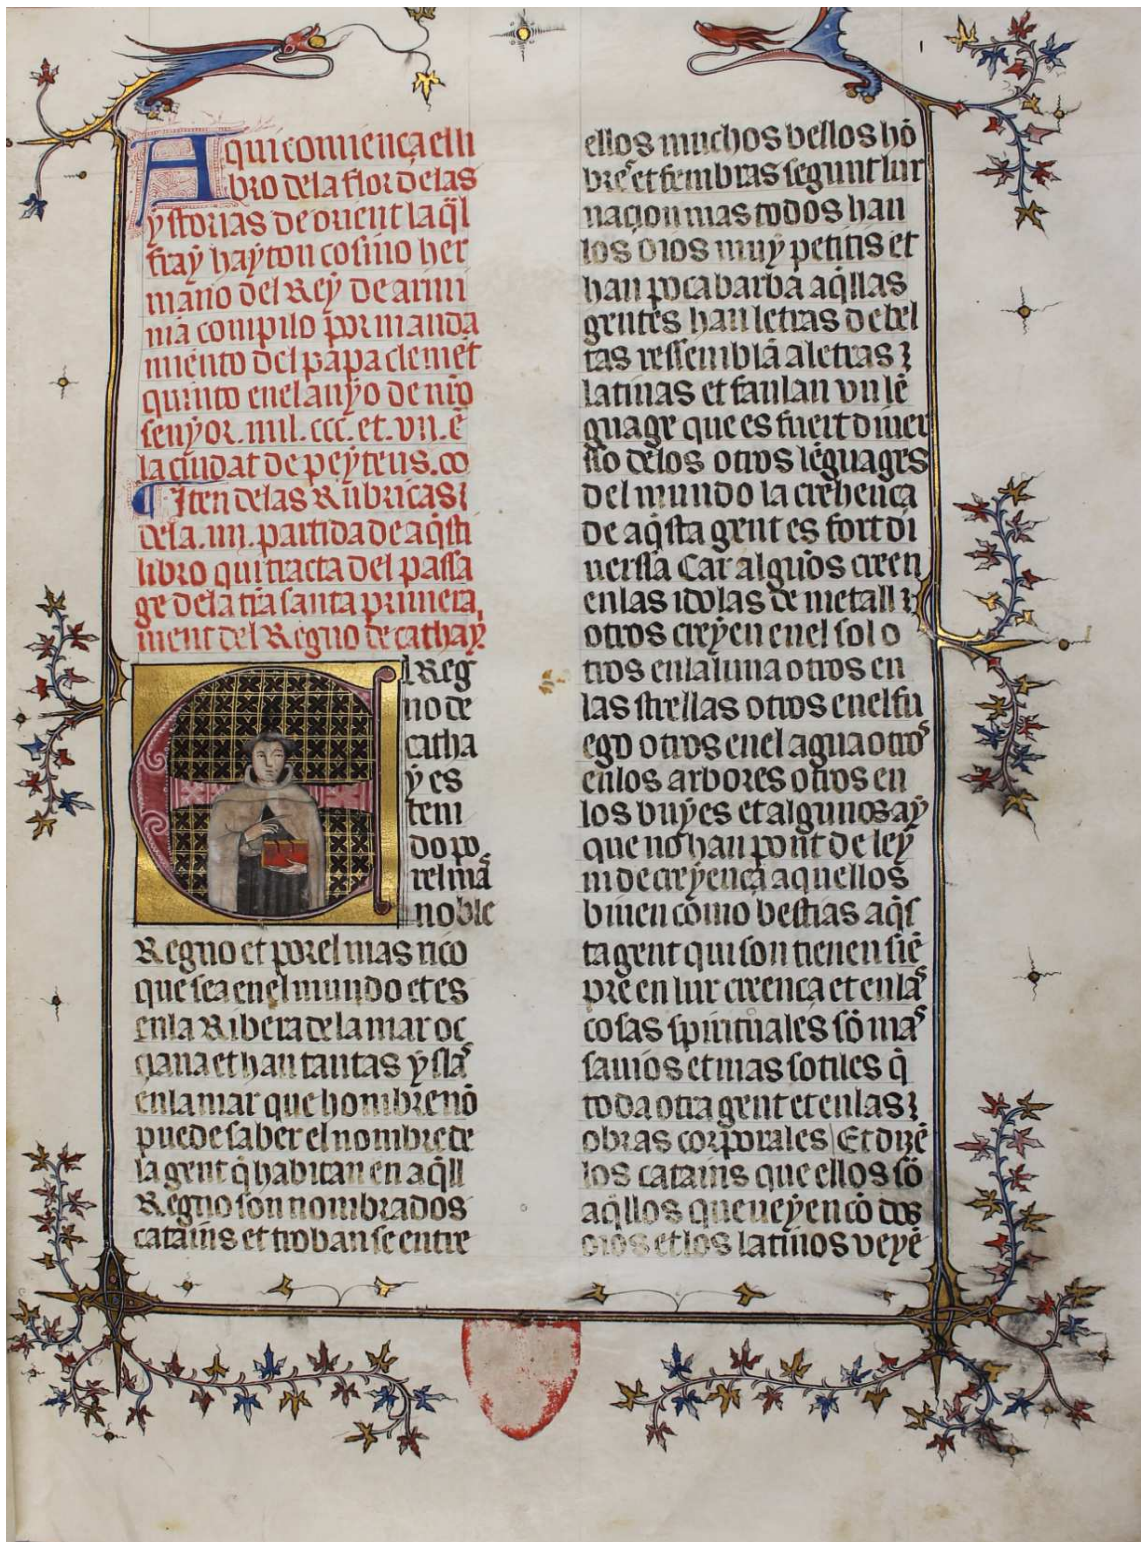 Aqui comiença el li
bro de la flor de las
ystorias de orient la q̃l
fray hayton cosino her
mano del Rey de armi
nia compilo por manda
miento del papa clemẽt
quinto en el anyo de nr̃o
senyor .mil. ccc. et. vii. ẽ
la ciudat de peyteus. co
¶ Iten de las Rubricas
de la .iiii. partida de aq̃sti
libro qui tracta del passa
ge de la tr̃a santa primera
ment del Regno de cathay.
El Reg
no de
catha
y es
teni
do po
rel mas
noble
Regno et por el mas rico
que sea en el mundo et es
en la Ribera de la mar oc
çiana et han tantas yslas
en la mar que hombre nõ
puede saber el nombre de
la gent q̃ habitan en aq̃ll
Regno son nombrados
catains et troban se entre
ellos muchos bellos hõ
bres et fembras segunt lur
naçion mas todos han
los oios muy petitis et
han poca barba aq̃llas
gentes han letras de bel
tas ressemblã a letras
latinas et faulan vn lẽ
guage que es fuert diuer
sso de los otros lẽguages
del mundo la crehença
de aq̃sta gent es fort di
uerssa Car algũos creen
en las idolas de metall
otros creyen en el sol o
tros en la luna otros en
las strellas otros en el fu
ego otros en el agua otros
en los arbores otros en
los buyes et algunos ay
que no han point de ley
ni de creyença aquellos
biuen como bestias aq̃s
ta gent qui son tienen siẽ
pre en lur creença et en las
cosas spirituales sõ mas
sauios et mas sotiles q̃
toda otra gent et en las
obras corporales Et dizẽ
los catains que ellos sõ
aq̃llos que ueyen cõ dos
oios et los latinos veyẽ